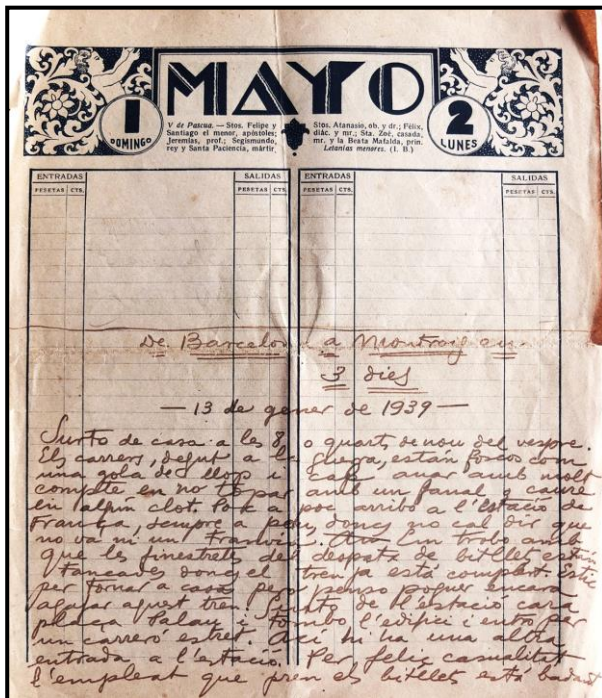 MAYO
1
DOMINGO
V de Pascua. — Stos. Felipe y
Santiago el menor, apóstoles;
Jeremías, prof.; Segismundo,
rey y Santa Paciencia, mártir.
Stos. Atanasio, ob. y dr.; Félix,
diác. y mr.; Sta. Zoé, casada,
mr. y la Beata Mafalda, prin.
Letanías menores. (I. B.)
2
LUNES
ENTRADAS SALIDAS ENTRADAS SALIDAS
PESETAS CTS. PESETAS CTS. PESETAS CTS. PESETAS CTS.
De Barcelona a Montroig en
3 dies
— 13 de gener de 1939 —
Surto de casa a les 8, o quarts de nou del vespre.
Els carrers, degut a la guerra, están foscos com
una gola de llop i cafe anar amb molt
compte en no topar amb un fanal y caure
en algún clot. Pok a poc arribo a l'estació de
França, sempre a peu, doncs no cal dir que
no va ni un tranvia. Em trobo amb
que les finestretes del despatx de bitllets están
tancades doncs el tren ja está complert. Estic
per tornar a casa pero penso poguer encara
agafar aquest tren. Surto de l'estació cara
plaça Palau i tombo l'edifici i entro per
un carreró estret. Aci hi ha una altra
entrada a l'estació. Per feliç casualitat
l'empleat que pren els bitllets está badant